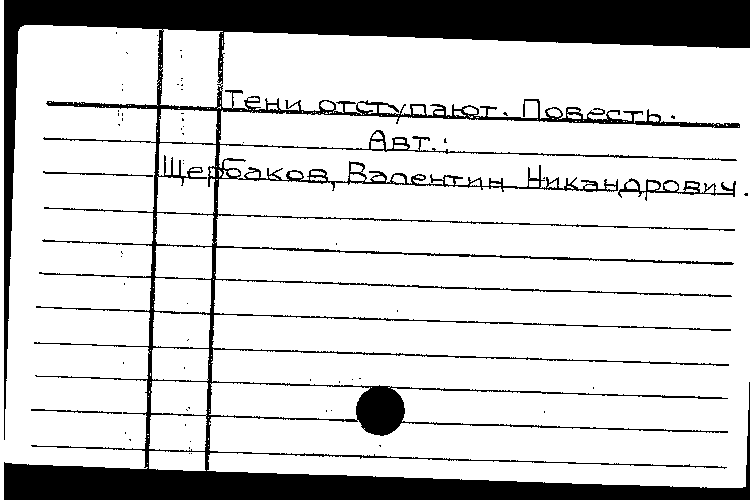 Тени отступают. Повесть.
Авт.:
Щербаков, Валентин Никандрович.